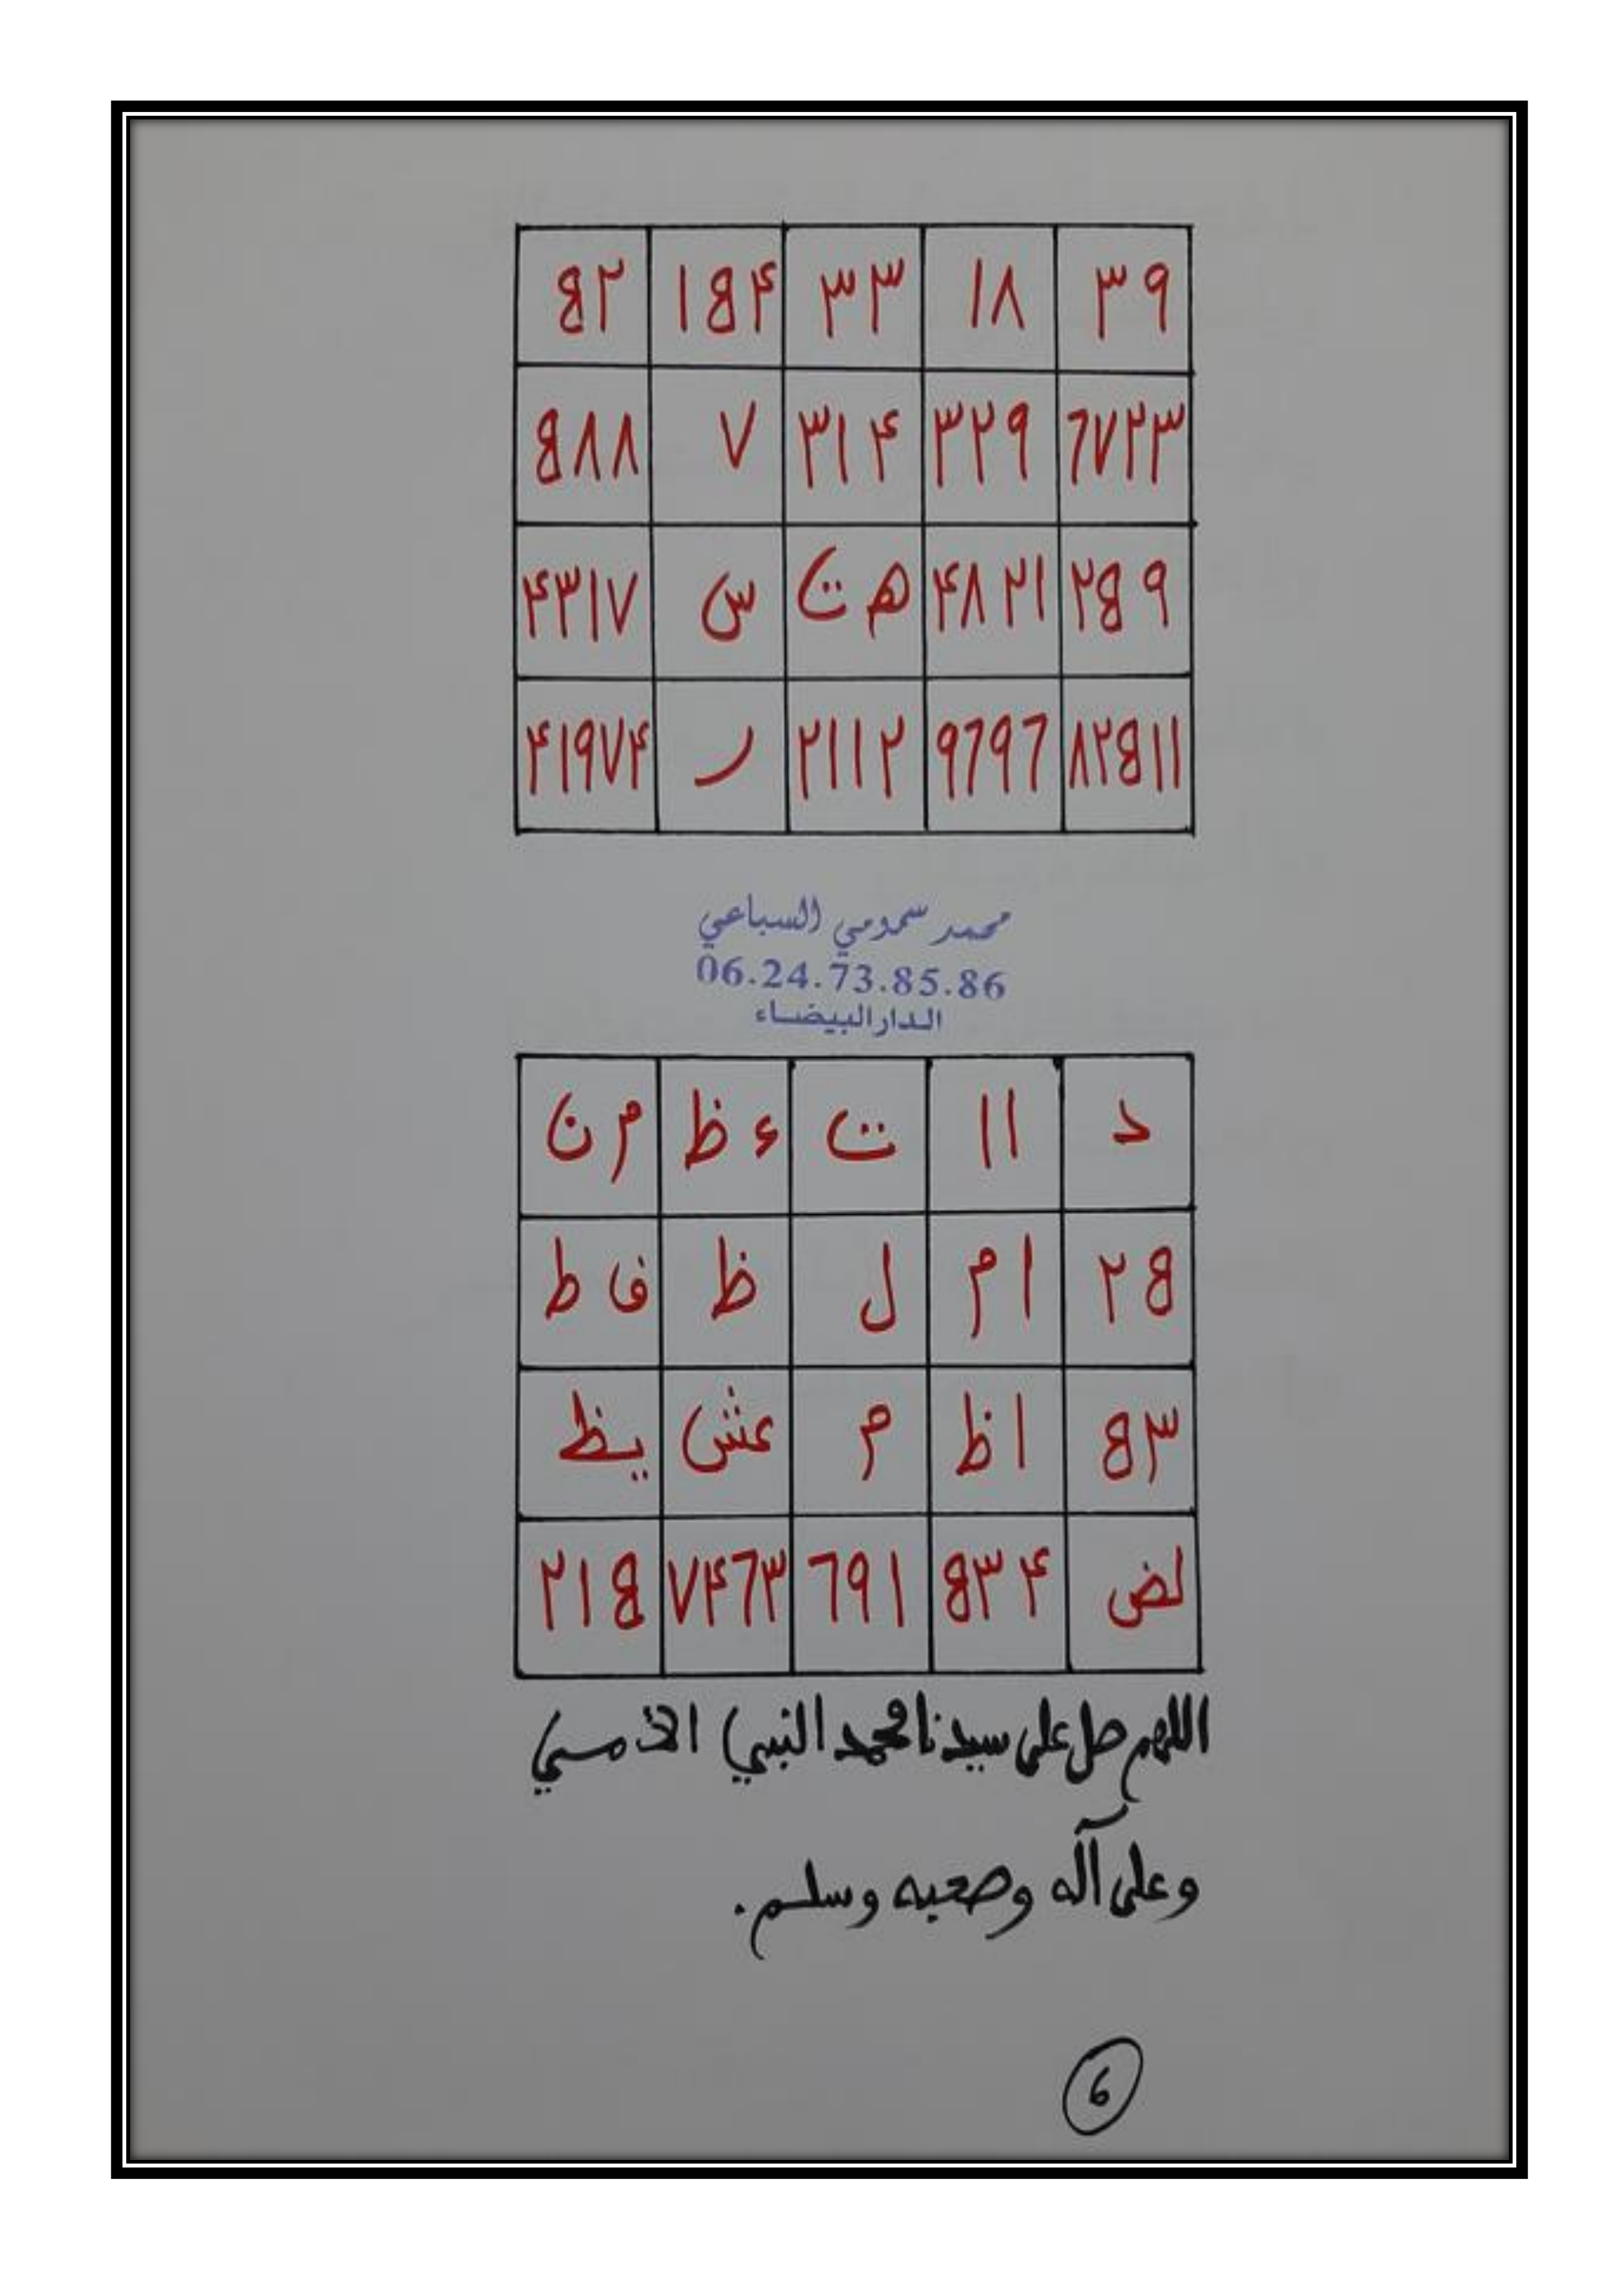 ٣٩ ١٨ ٣٣ ١۵۴ ۵٢
٦٧٢٣ ٣٢٩ ٣١۴ ٧ ۵٨٨
٢۵٩ ۴٨٢١ ه ت س ۴٣١٧
٨٢۵١١ ٩٦٩٦ ٢١١٢ ر ۴١٩٧۴
محمد سمومي السباعي
06.24.73.85.86
الدار البيضاء
د اا ت ء ظ م ن
٢۵ ا م ل ظ ف ط
۵٣ ا ظ م عش يظ
لض ۵٣۴ ٦٩١ ٧۴٦٣ ٢١۵
اللهم صل على سيدنا محمد النبي الأمي
وعلى آله وصحبه وسلم.
6